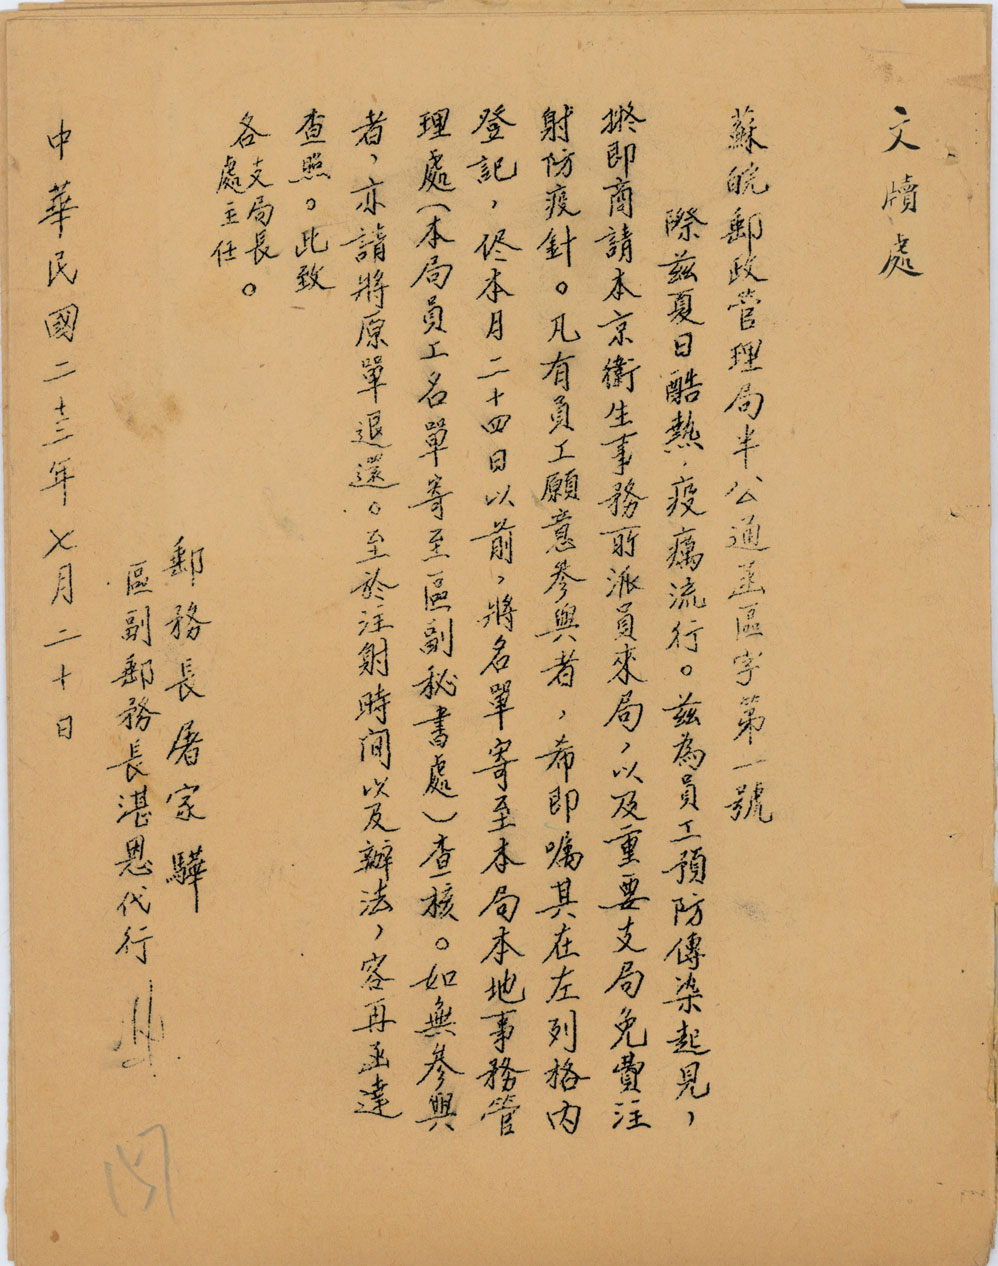 文牘處
蘇皖郵政管理局半公通函區字第一號
際茲夏日酷熱，疫癘流行。茲為員工預防傳染起見，
擬即商請本京衛生事務所派員來局，以及重要支局免費注
射防疫針。凡有員工願意參與者，希即囑其在左列格內
登記，俟本月二十四日以前，將名單寄至本局本地事務管
理處（本局員工名單寄至區副秘書處）查核。如無參與
者，亦請將原單退還。至於注射時間以及辦法，容再函達
查照。此致
各支局長
處主任。
郵務長屠家驊
區副郵務長湛恩代行
中華民國二十三年七月二十日